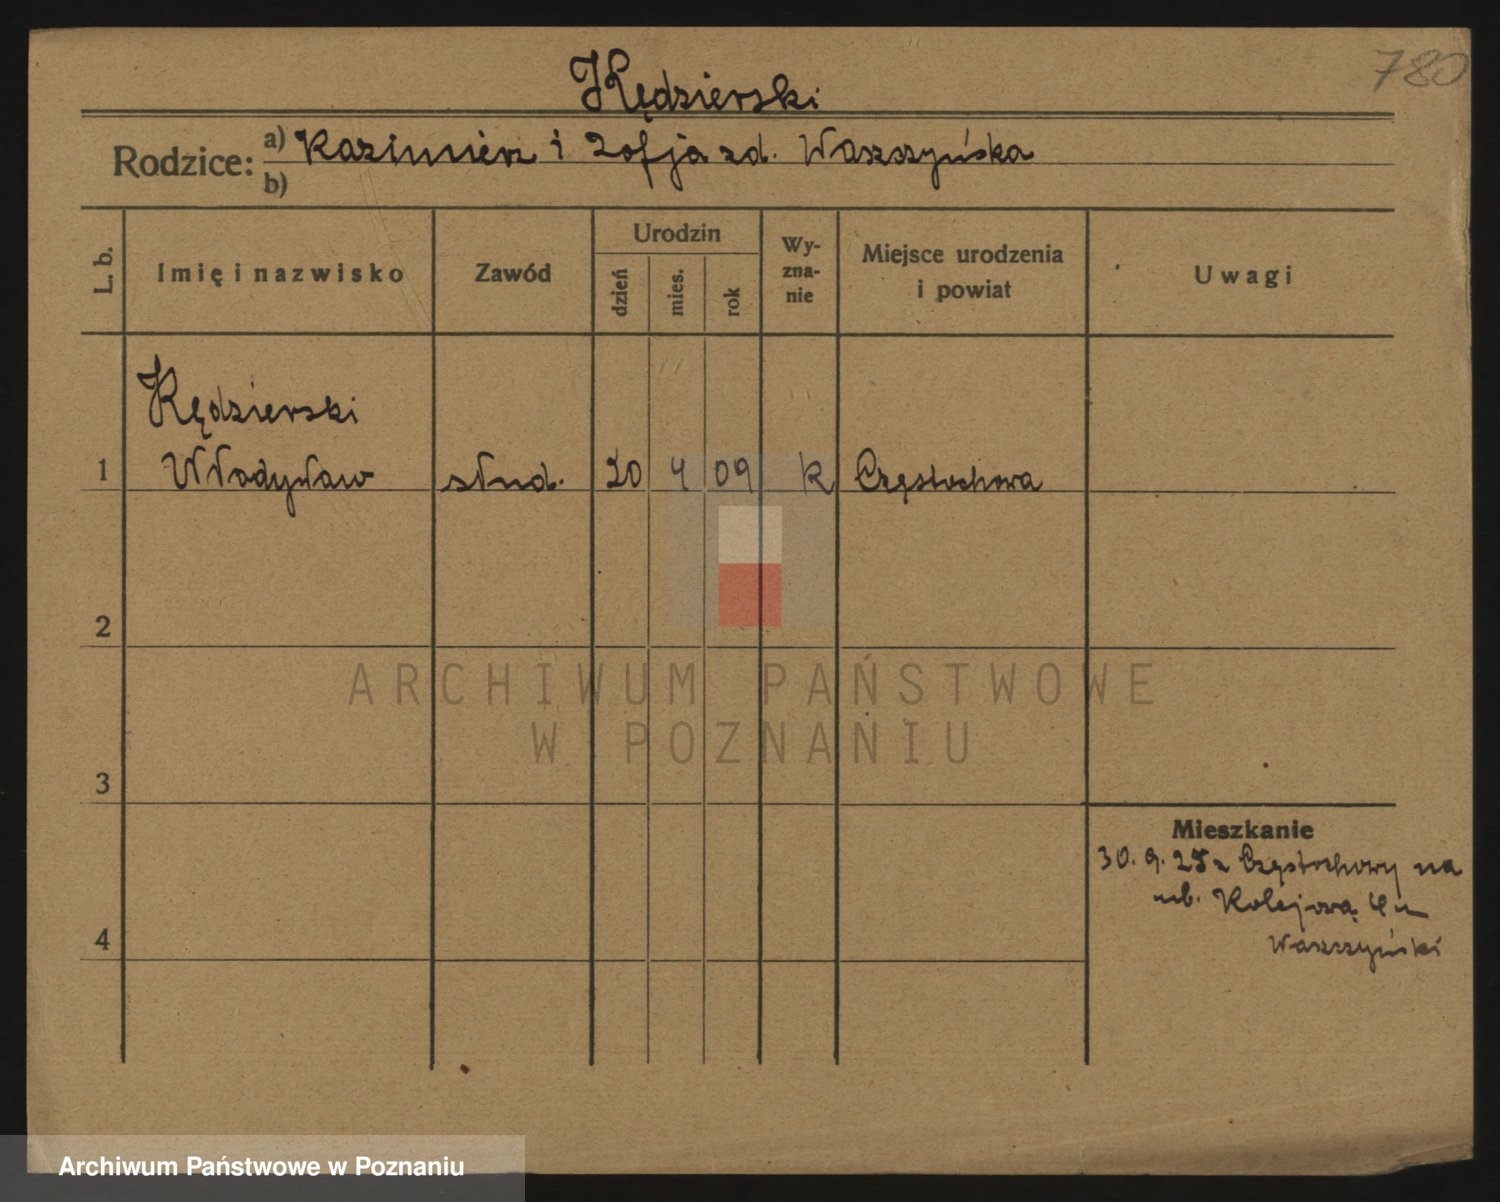 780
Kędzierski
Rodzice: a) Kazimierz i Zofja zd. Waszczyńska
b)
L. b.
Imię i nazwisko
Zawód
Urodzin
dzień
mies.
rok
Wy-
zna-
nie
Miejsce urodzenia
i powiat
Uwagi
Kędzierski
1 Władysław stud. 20 4 09 k Częstochowa
2
3
4
Mieszkanie
30. 9. 28 z Częstochowy na
ub. Kolejową
Waszczyński
ARCHIWUM PAŃSTWOWE
W POZNANIU
Archiwum Państwowe w Poznaniu